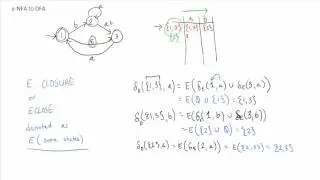 ε-NFA to DFA
a
b
a,b
ε
a
1
2
3
a b
{1,3} {1,3} {2}
{2}
E CLOSURE
or
ECLOSE
denoted as
E (some states)
δD({1,3}, a) = E(δN(1,a) ∪ δN(3,a))
= E(∅ ∪ {1}) = {1,3}
δD({1,3}, b) = E(δN(1,b) ∪ δN(3,b))
= E({2} ∪ ∅) = {2}
δD({2}, a) = E(δN(2,a)) = E({2,3}) = {2,3}